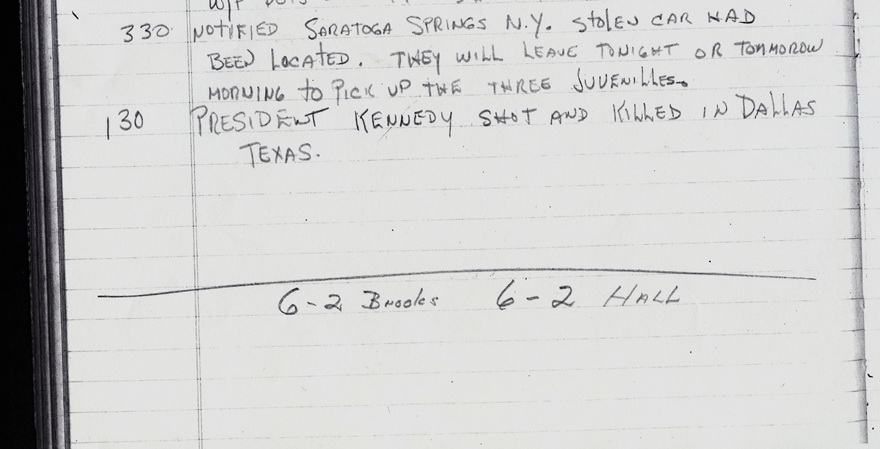 330 NOTIFIED SARATOGA SPRINGS N.Y. STOLEN CAR HAD
BEEN LOCATED. THEY WILL LEAVE TONIGHT OR TOMMOROW
MORNING TO PICK UP THE THREE JUVENILLES.
130 PRESIDENT KENNEDY SHOT AND KILLED IN DALLAS
TEXAS.
6-2 Brooks 6-2 HALL